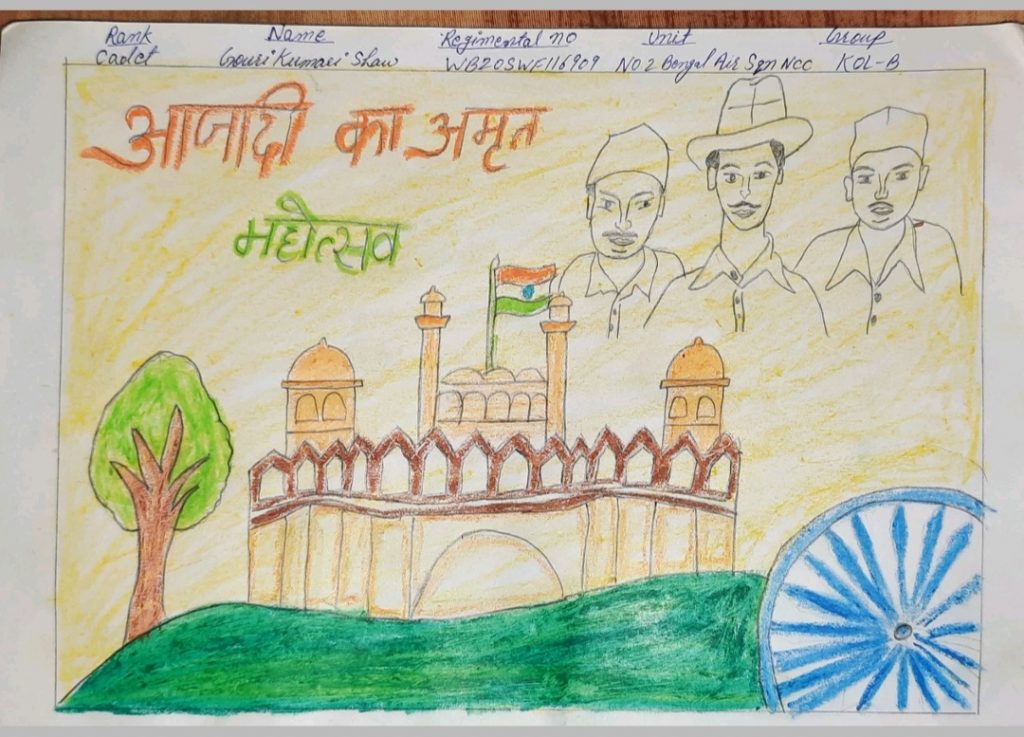 Rank Name Regimental no Unit Group
Cadet Gouri Kumari Shaw WB20SWF116909 NO 2 Bengal Air Sqn NCC KOL-B
आजादी का अमृत
महोत्सव